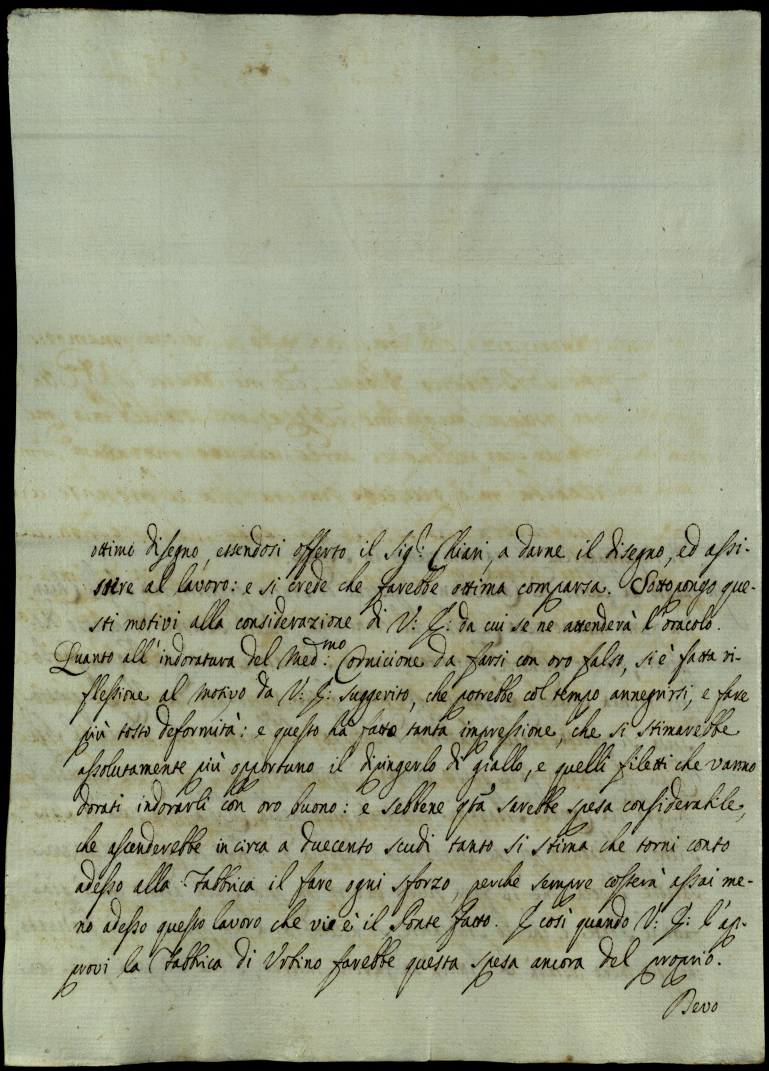 ottimo disegno, essendosi offerto il Sig.r Chiari, a darne il disegno, ed assi-
stere al lavoro: e si crede che farebbe ottima comparsa. Sottopongo que-
sti motivi alla considerazione di V: E: da cui se ne attenderà l'oracolo.
Quanto all'indoratura del Med:mo Cornicione da farsi con oro falso, si è fatta ri-
flessione al motivo da V: E: suggerito, che potrebbe col tempo annegrirsi, e fare
più tosto deformità: e questo ha fatto tanta impressione, che si stimarebbe
assolutamente più opportuno il dipingerlo di giallo, e quelli filetti che vanno
dorati indorarli con oro buono: e sebbene qta sarebbe spesa considerabile,
che ascenderebbe in circa a duecento scudi tanto si stima che torni conto
adesso alla Fabbrica il fare ogni sforzo, perche sempre costerà assai me-
no adesso questo lavoro che vie è il Ponte fatto. E così quando V: E: l'ap-
provi la Fabbrica di Urbino farebbe questa spesa ancora del proprio.
Devo